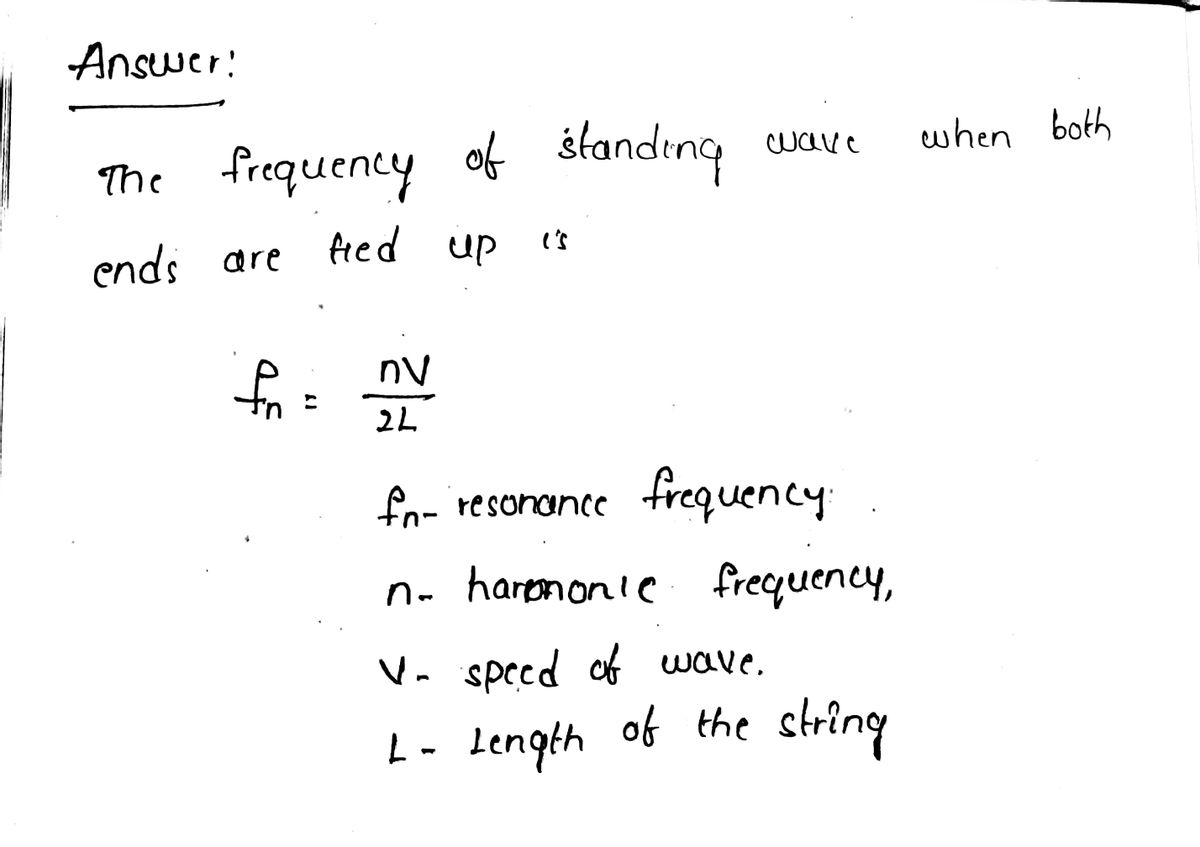 Answer:
The frequency of standing wave when both
ends are tied up is
fn = nV
2L
fn - resonance frequency.
n - harmonic frequency,
V - speed of wave.
L - Length of the string